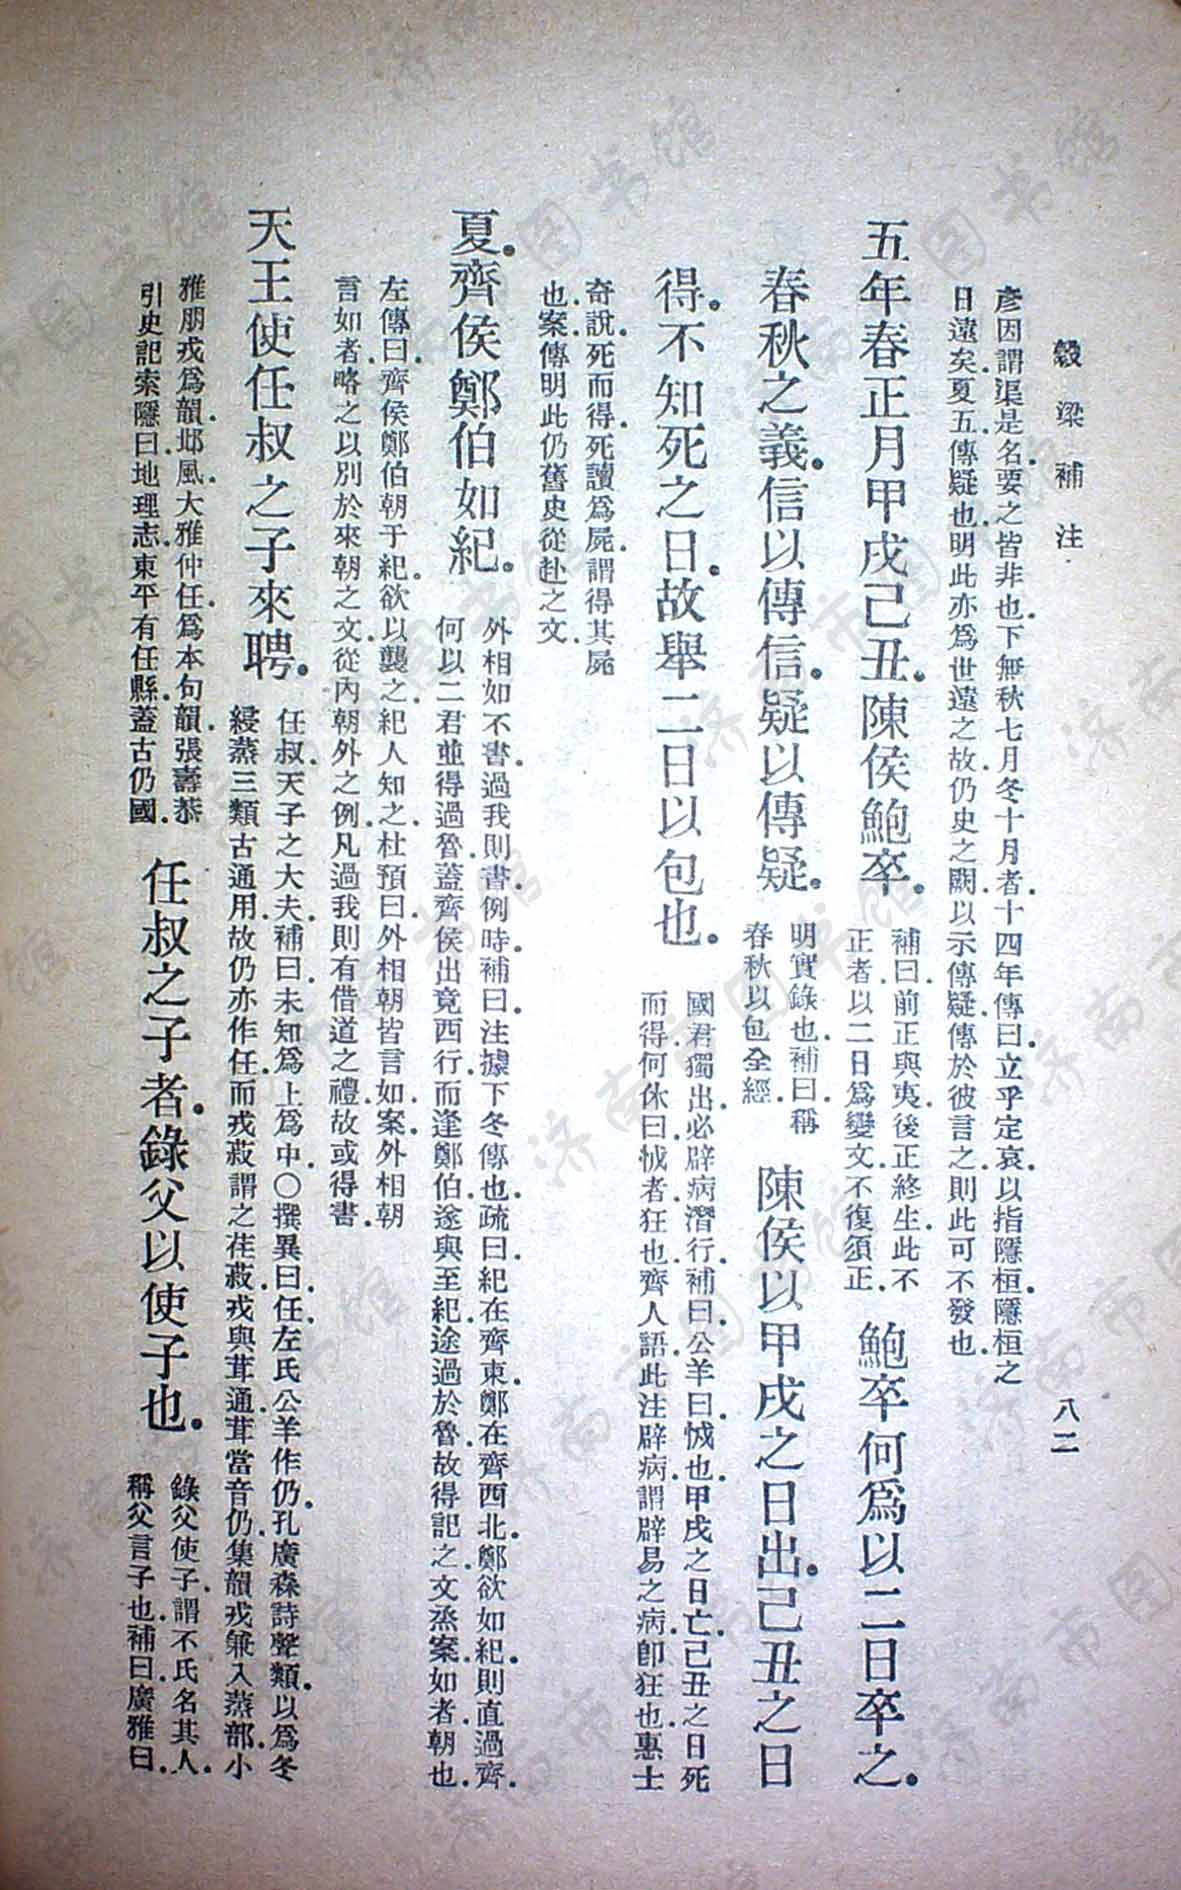 穀梁補注
八二
彥因謂渠是名要之皆非也下無秋七月冬十月者十四年傳曰立乎定哀以指隱桓隱桓之
日遠矣夏五傳疑也明此亦爲世遠之故仍史之闕以示傳疑傳於彼言之則此可不發也
五年春正月甲戌己丑陳侯鮑卒
補曰前正與夷後正終生此不
正者以二日爲變文不復須正
鮑卒何爲以二日卒之
春秋之義信以傳信疑以傳疑
明實錄也補曰稱
春秋以包全經
陳侯以甲戌之日出己丑之日
得不知死之日故舉二日以包也
國君獨出必辟病潛行補曰公羊曰怴也甲戌之日亡己丑之日死
而得何休曰怴者狂也齊人語此注辟病謂辟易之病卽狂也惠士
奇說死而得死讀爲屍謂得其屍
也案傳明此仍舊史從赴之文
夏齊侯鄭伯如紀
外相如不書過我則書例時補曰注據下冬傳也疏曰紀在齊東鄭在齊西北鄭欲如紀則直過齊
何以二君並得過魯蓋齊侯出竟西行而逢鄭伯遂與至紀途過於魯故得記之文烝案如者朝也
左傳曰齊侯鄭伯朝于紀欲以襲之紀人知之杜預曰外相朝皆言如案外相朝
言如者略之以別於來朝之文從內朝外之例凡過我則有借道之禮故或得書
天王使任叔之子來聘
任叔天子之大夫補曰未知爲上爲中○撰異曰任左氏公羊作仍孔廣森詩聲類以爲冬
綅蒸三類古通用故仍亦作任而戎菽謂之荏菽戎與茸通茸當音仍集韻戎兼入蒸部小
雅朋戎爲韻邶風大雅仲任爲本句韻張壽恭
引史記索隱曰地理志東平有任縣蓋古仍國
任叔之子者錄父以使子也
錄父使子謂不氏名其人
稱父言子也補曰廣雅曰
济南市图书馆